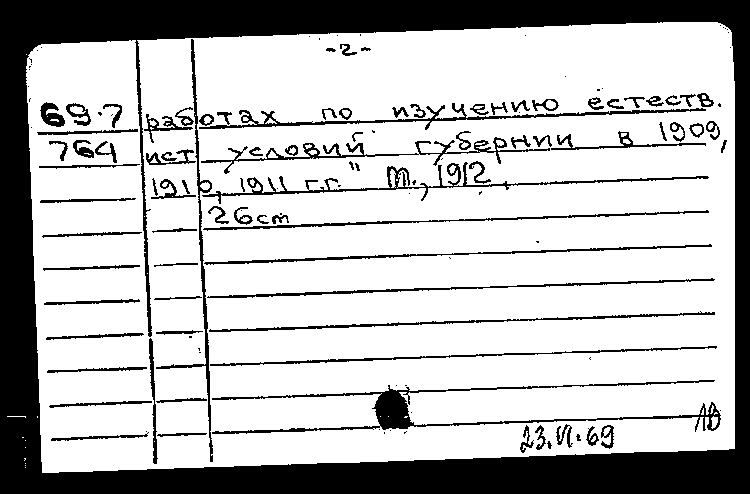 -2-
69.7 работах по изучению естеств.
764 ист условий губернии в 1909,
1910, 1911 г.г." Т., 1912.
26cm
23.VI.69 ЛВ